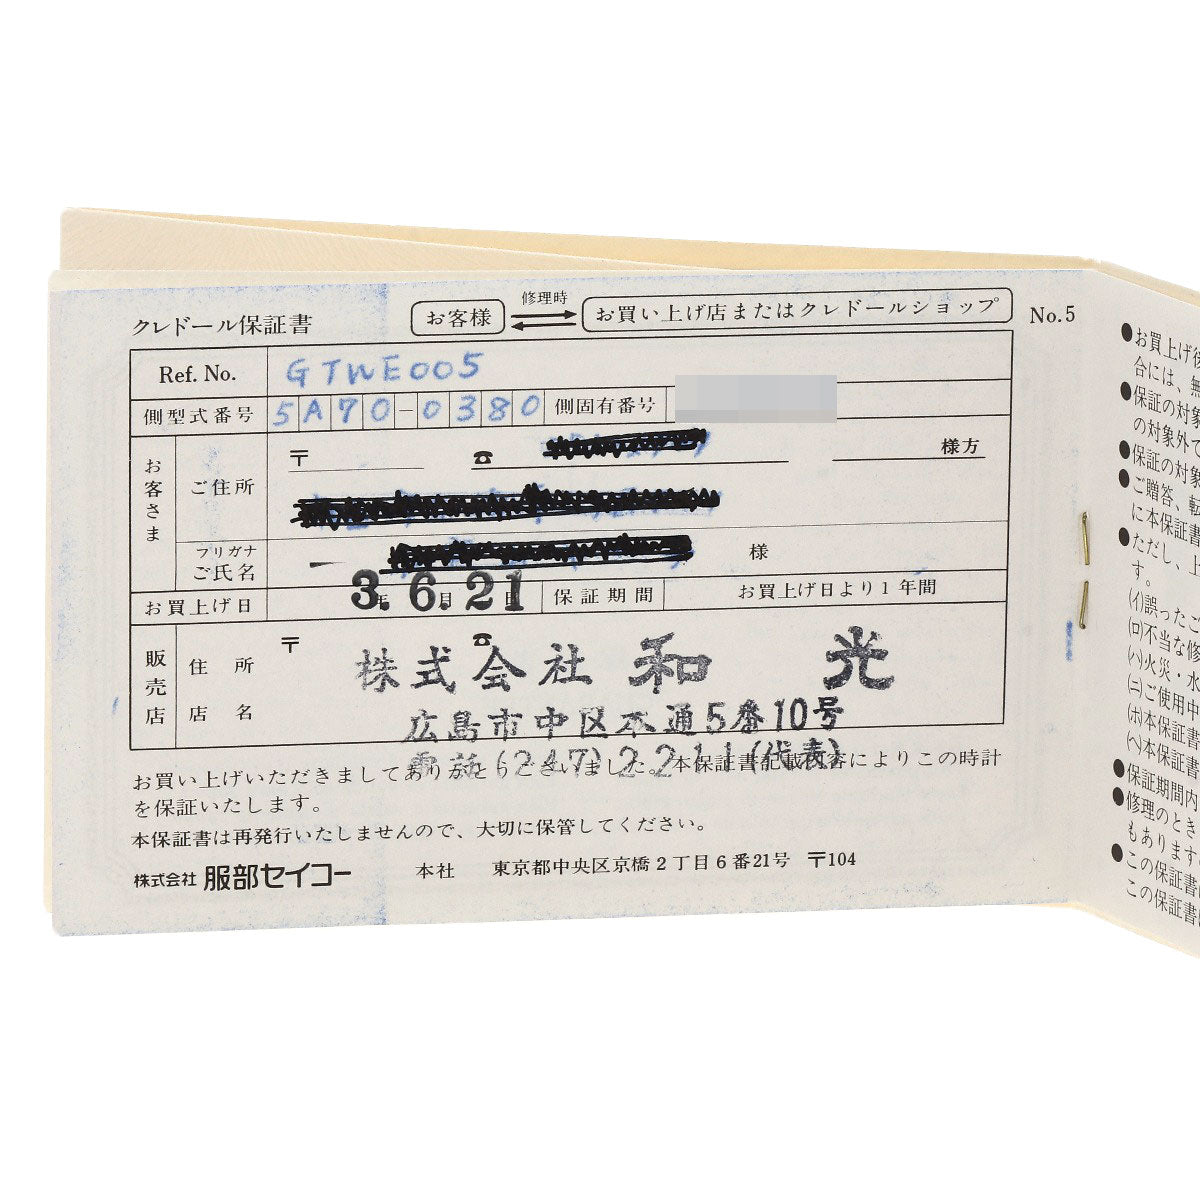 クレドール保証書 お客様 修理時 お買い上げ店またはクレドールショップ No.5
Ref. No. GTWE005
側型式番号 5A70-0380 側固有番号
お客さま
ご住所 〒 ☎ 様方
フリガナ
ご氏名 様
お買上げ日 3.年 6.月 21日 保証期間 お買上げ日より1年間
販売店
住所 〒 ☎
店名
株式会社 和光
広島市中区本通5番10号
電話(247)2211(代表)
お買い上げいただきましてありがとうございました。本保証書記載内容によりこの時計
を保証いたします。
本保証書は再発行いたしませんので、大切に保管してください。
株式会社 服部セイコー 本社 東京都中央区京橋2丁目6番21号 〒104
●お買上げ後
合には、無
●保証の対象
の対象外で
●保証の対象
●ご贈答、転
に本保証書
●ただし、上
す。
(イ)誤ったご
(ロ)不当な修
(ハ)火災・水
(ニ)ご使用中
(ホ)本保証書
(ヘ)本保証書
●保証期間内
●修理のとき
もあります
●この保証書
この保証書